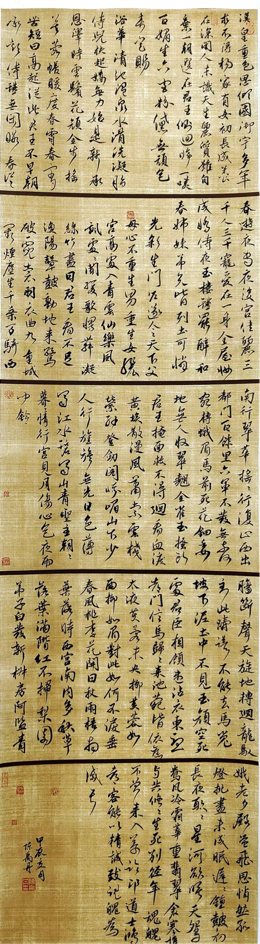 漢皇重色思傾國御宇多年
求不得楊家有女初長成養
在深閨人未識天生麗質難自
棄一朝選在君王側回眸一笑
百媚生六宮粉黛無顏色
春寒賜
浴華清池溫泉水滑洗凝脂
侍兒扶起嬌無力始是新承
恩澤時雲鬢花顏金步搖
芙蓉帳暖度春宵春宵
苦短日高起從此君王不早朝
承歡侍宴無閒暇春從
春遊夜專夜後宮佳麗三
千人三千寵愛在一身金屋妝
成嬌侍夜玉樓宴罷醉和
春姊妹弟兄皆列土可憐
光彩生門戶遂令天下父
母心不重生男重生女驪
宮高處入青雲仙樂風
飄處處聞緩歌慢舞凝
絲竹盡日君王看不足
漁陽鼙鼓動地來驚
破霓裳羽衣曲九重城
闕煙塵生千乘萬騎西
南行翠華搖搖行復止西出
都門百餘里六軍不發無奈何
宛轉蛾眉馬前死花鈿委
地無人收翠翹金雀玉搔頭
君王掩面救不得回看血淚
黃埃散漫風蕭索雲棧
縈紆登劍閣峨嵋山下少
人行旌旗無光日色薄
蜀江水碧蜀山青聖主朝朝
暮暮情行宮見月傷心色夜雨
中鈴
腸斷聲天旋地轉迴龍馭
到此躊躇不能去馬嵬
坡下泥土中不見玉顏空死
處君臣相顧盡沾衣東望
都門信馬歸歸來池苑皆依舊
太液芙蓉未央柳芙蓉如
面柳如眉對此如何不淚垂
春風桃李花開日秋雨梧桐
葉落時西宮南內多秋草
落葉滿階紅不掃梨園
弟子白髮新椒房阿監青
娥老夕殿螢飛思悄然孤
燈挑盡未成眠遲遲鐘鼓初
長夜耿耿星河欲曙天鴛
鴦瓦冷霜華重翡翠衾寒
與共悠悠生死別經年魂魄
不曾來入夢臨邛道士鴻
都客能以精誠致魂魄為
感
甲辰五月